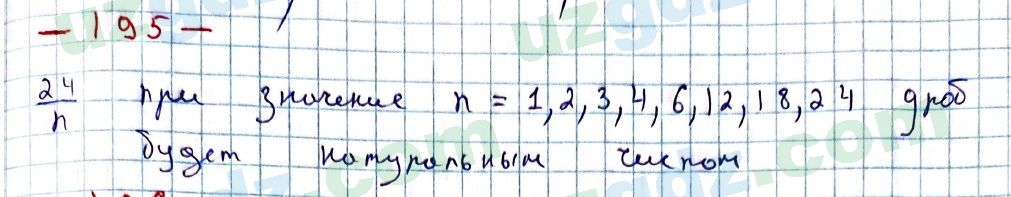 — 195 —
24/n при значение n = 1, 2, 3, 4, 6, 12, 18, 24 дроб
будет натуральным числом